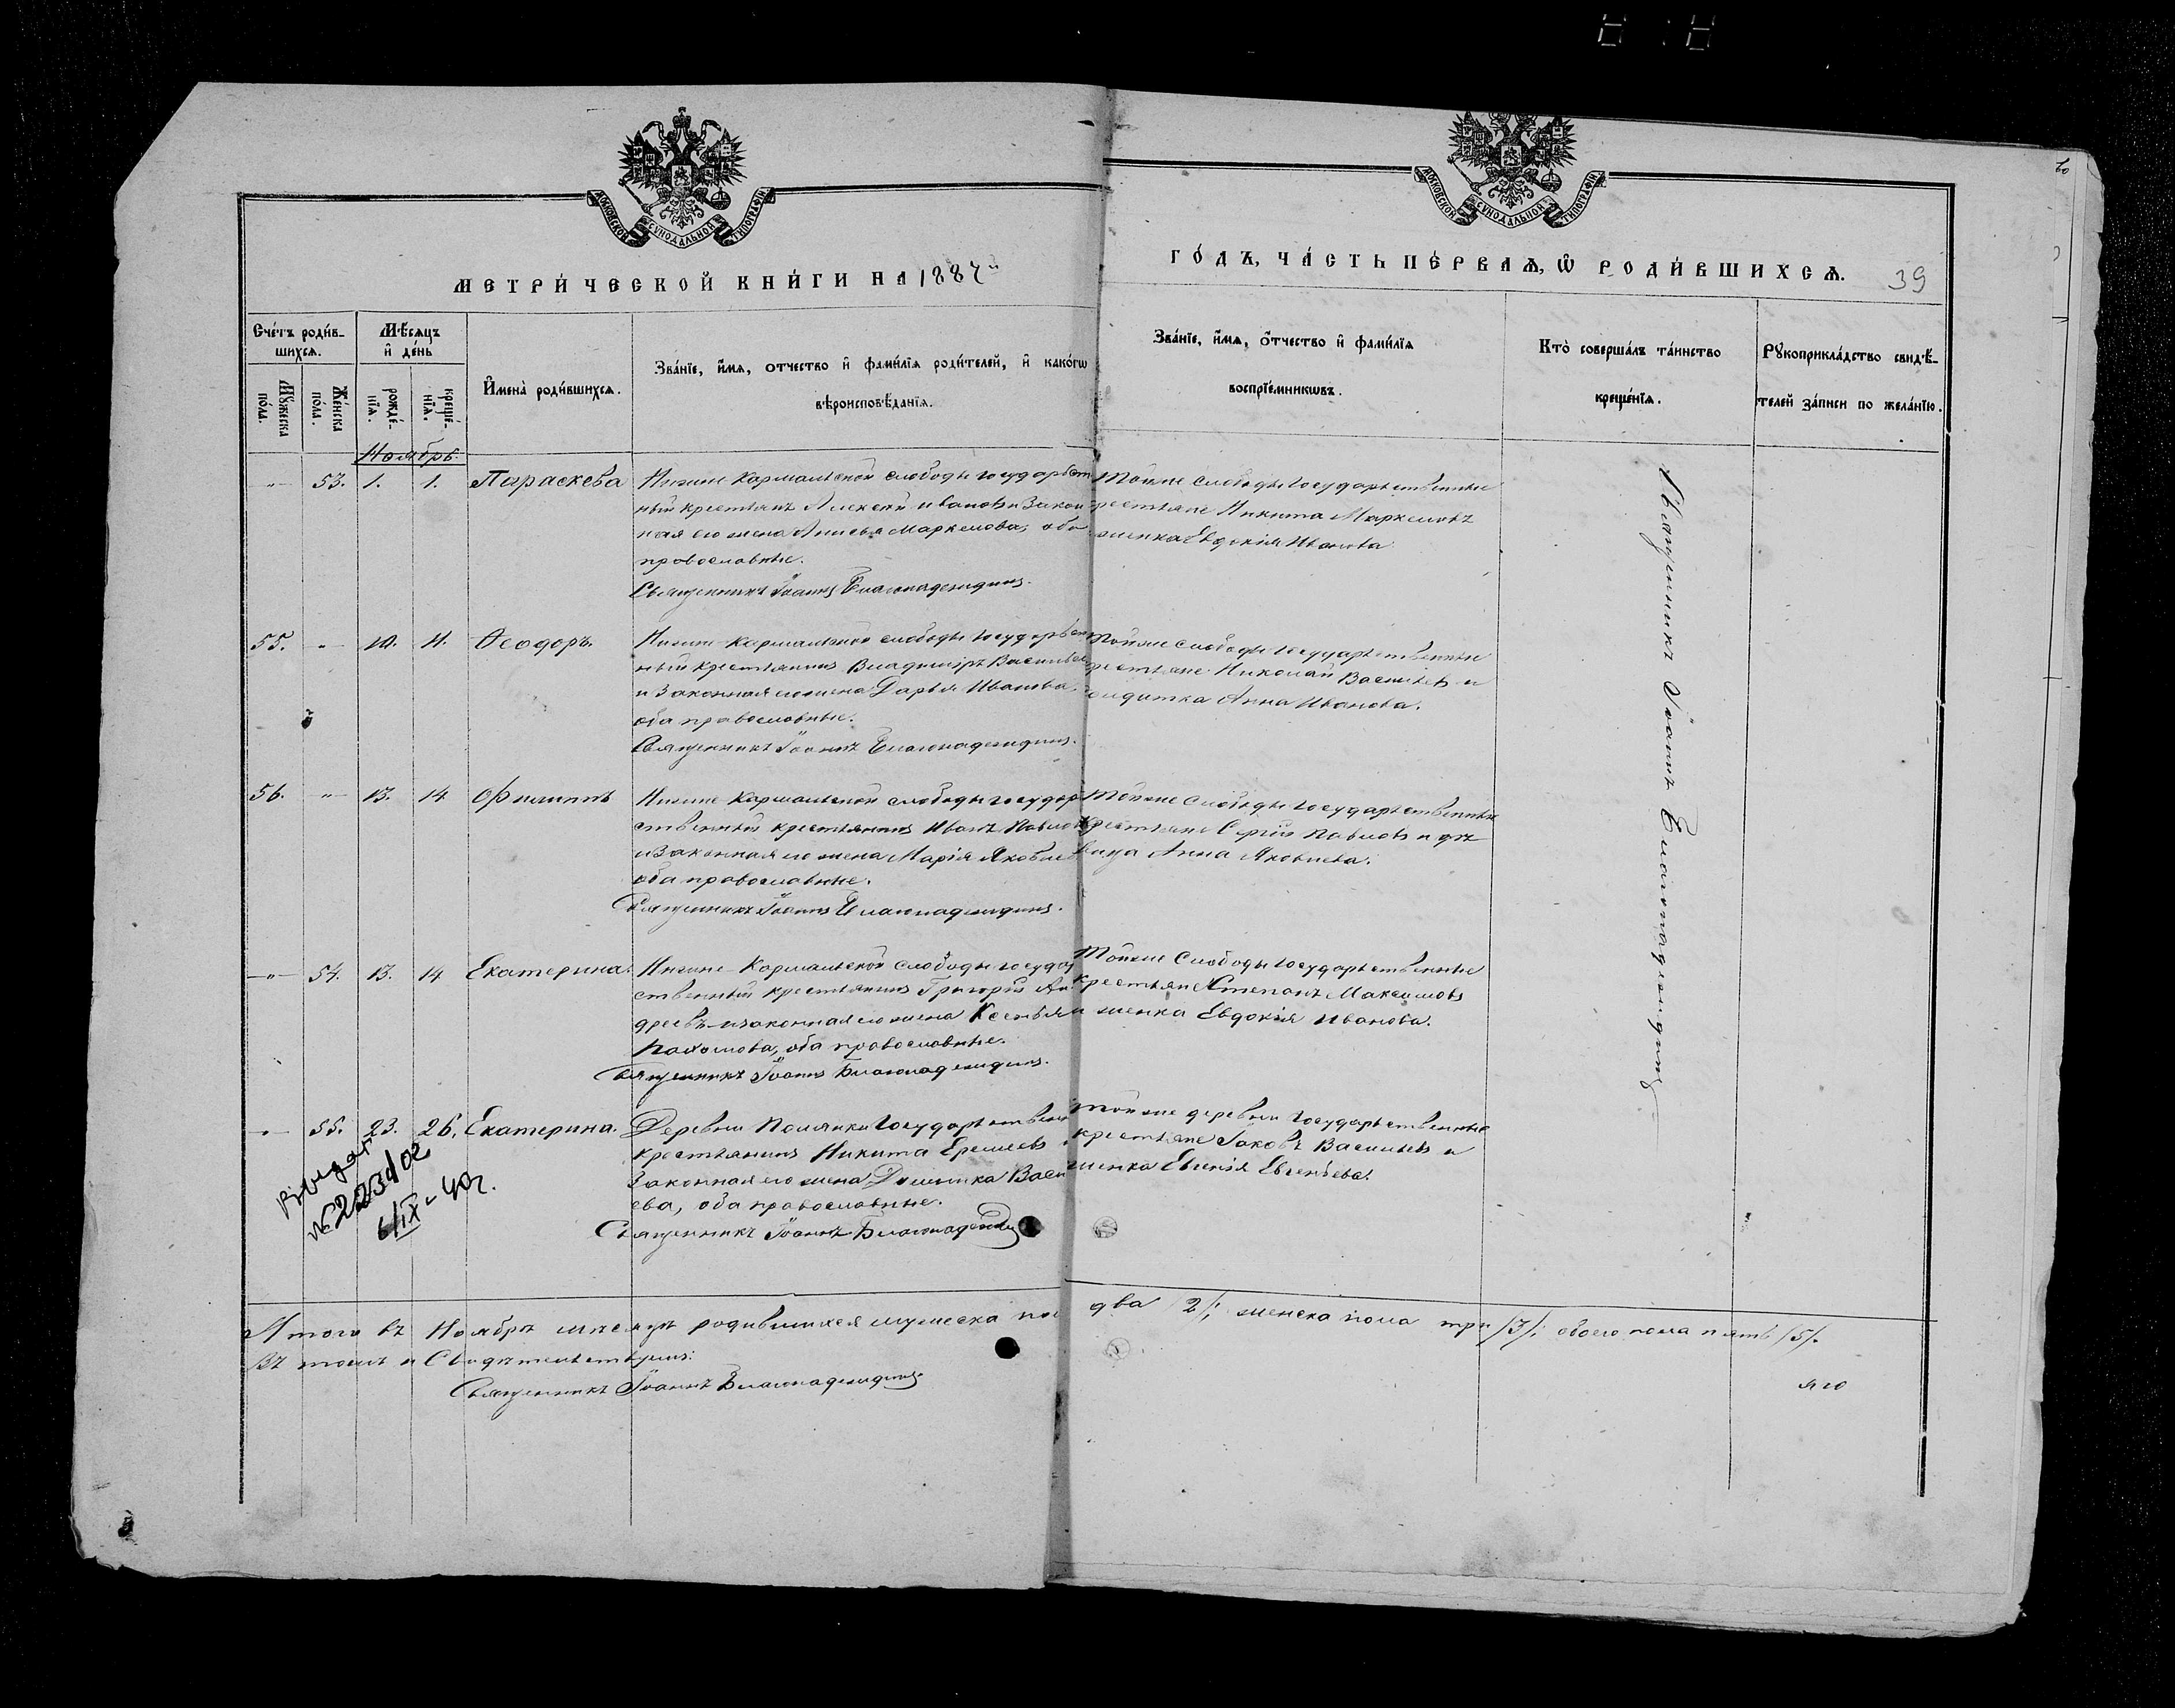 МОСКОВСКОЙ СѴНОДАЛЬНОЙ ТИПОГРАФІИ
МОСКОВСКОЙ СѴНОДАЛЬНОЙ ТИПОГРАФІИ
МЕТРИ́ЧЕСКОЙ КНИ́ГИ НА 1887й
ГО́ДЪ, ЧА́СТЬ ПЕ́РВАѦ, Ѿ РОДИ́ВШИХСѦ. 39
Сче́тъ роди́в-
шихсѧ.
Мꙋ́жеска
по́ла.
Же́нска
по́ла.
Мѣ́сѧцъ
и҆ де́нь
рожде́-
нїѧ.
креще́-
нїѧ.
И҆мена̀ роди́вшихсѧ.
Зва́нїе, и҆́мѧ, о҆́тчество и҆ фами́лїѧ роди́телей, и҆ како́гѡ
вѣроисповѣ́данїѧ.
Зва́нїе, и҆́мѧ, о҆́тчество и҆ фами́лїѧ
воспрїе́мникѡвъ.
Кто̀ соверша́лъ та́инство
креще́нїѧ.
Рꙋкоприкла́дство свидѣ́-
телей за́писи по жела́нїю.
Ноябрь.
-"- 53. 1. 1. Параскева
Нижне Кармальской слободы государст
ный крестьянъ Алексѣй Ивановъ и Закон
ная его жена Анисья Маркелова, оба
православные.
Священникъ Іоаннъ Благонадеждинъ.
Тойже слободы государственные
крестьяне Никита Маркеловъ
женка Евдокія Иванова
55. -"- 10. 11. Ѳеодоръ.
Нижне-Кармальской слободы государствен
ный крестьянинъ Владиміръ Васильев
и Законная его жена Дарья Иванова
оба православные.
Священникъ Іоаннъ Благонадеждинъ.
Тойже слободы государственные
крестьяне Николай Васильевъ и
Анна Иванова.
56. -"- 13. 14 Филиппъ
Нижне Кармальской слободы государ
ственный крестьянинъ Иванъ Павловъ
и Законная его жена Марія Яковлев
оба православные.
Священникъ Іоаннъ Благонадеждинъ.
Тойже слободы государственные
крестьяне Сергій Павловъ и дѣ
вица Анна Яковлева.
-"- 54. 13. 14 Екатерина.
Нижне-Кармальской слободы государ
ственный крестьянинъ Григорій Ан
дреевъ и законная его жена Ксенья
Пахомова, оба православные.
Священникъ Іоаннъ Благонадеждинъ.
Тойже Слободы государственные
крестьяне Степанъ Максимовъ
и женка Евдокія Иванова.
-"- 55. 23. 26. Екатерина.
Деревни Полянки Государственн
крестьянинъ Никита Еремеевъ
Законная его жена Домника Васи
ева, оба православные.
Священникъ Іоаннъ Благонадеждинъ
Тойже деревни государственные
крестьяне Іаковъ Васильевъ и
женка Евгенія Евгеньева.
6/IX-40г.
Священникъ Іоаннъ Благонадеждинъ
Итого въ Ноябрѣ мѣсяцѣ родившихся мужеска пол два /2/; женска пола три /3/; обоего пола пять /5/.
Въ томъ и Свидѣтельствуемъ:
Священникъ Іоаннъ Благонадеждинъ.